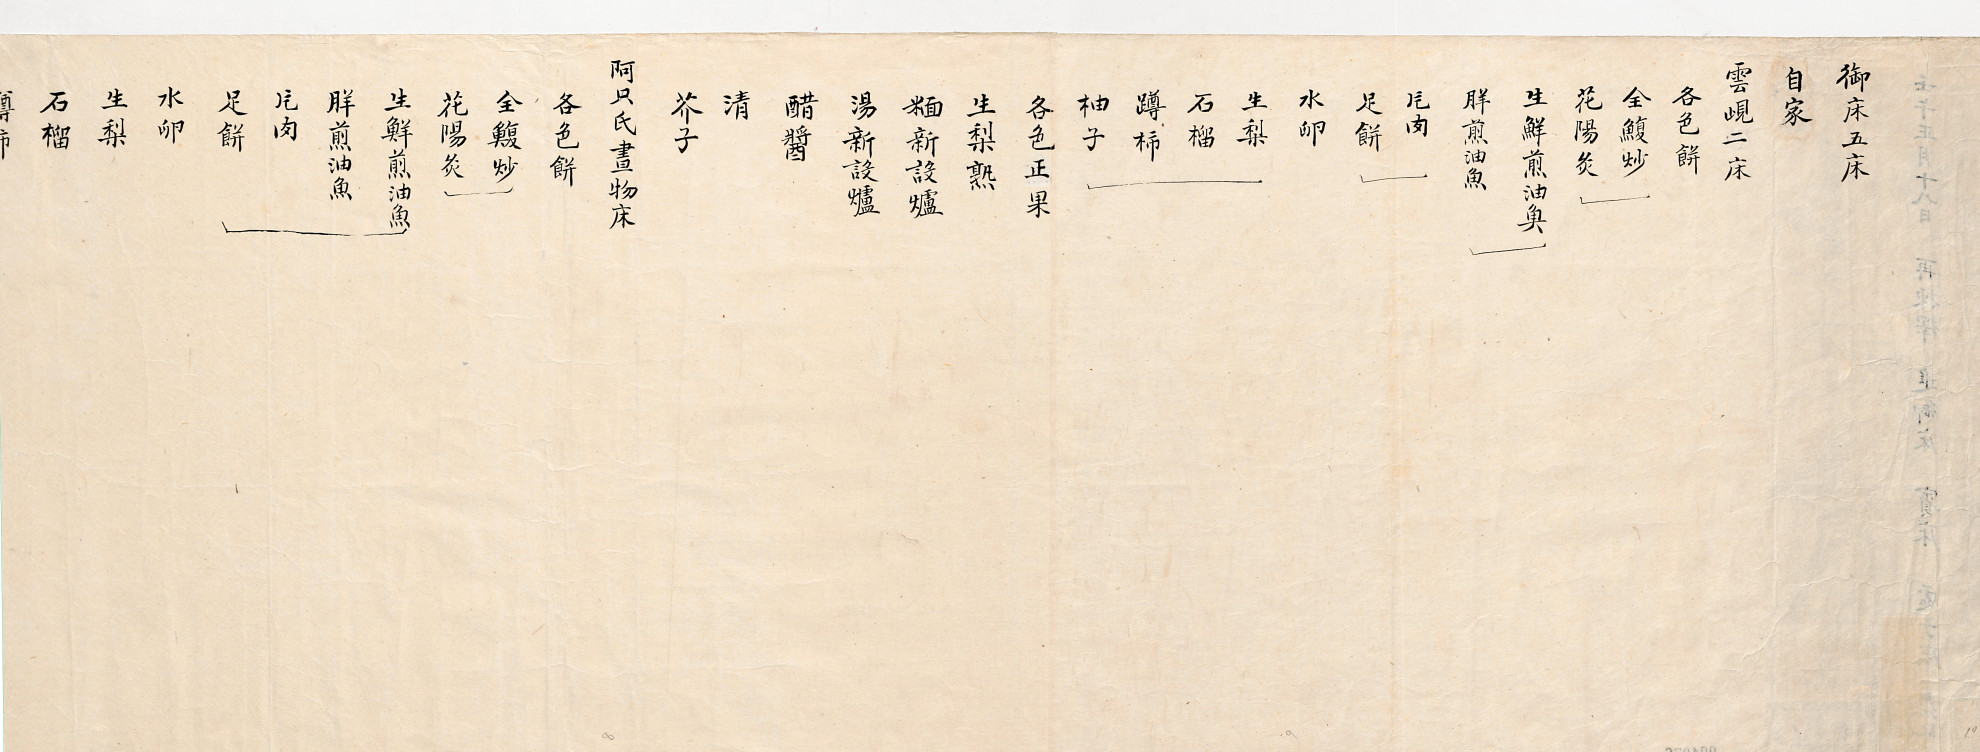 御床五床
自家
雲峴二床
各色餠
全鰒炒
花陽炙
生鮮煎油魚
胖煎油魚
片肉
足餠
水卵
生梨
石榴
蹲柿
柚子
各色正果
生梨熟
麵新設爐
湯新設爐
醋醬
清
芥子
阿只氏晝物床
各色餠
全鰒炒
花陽炙
生鮮煎油魚
胖煎油魚
片肉
足餠
水卵
生梨
石榴